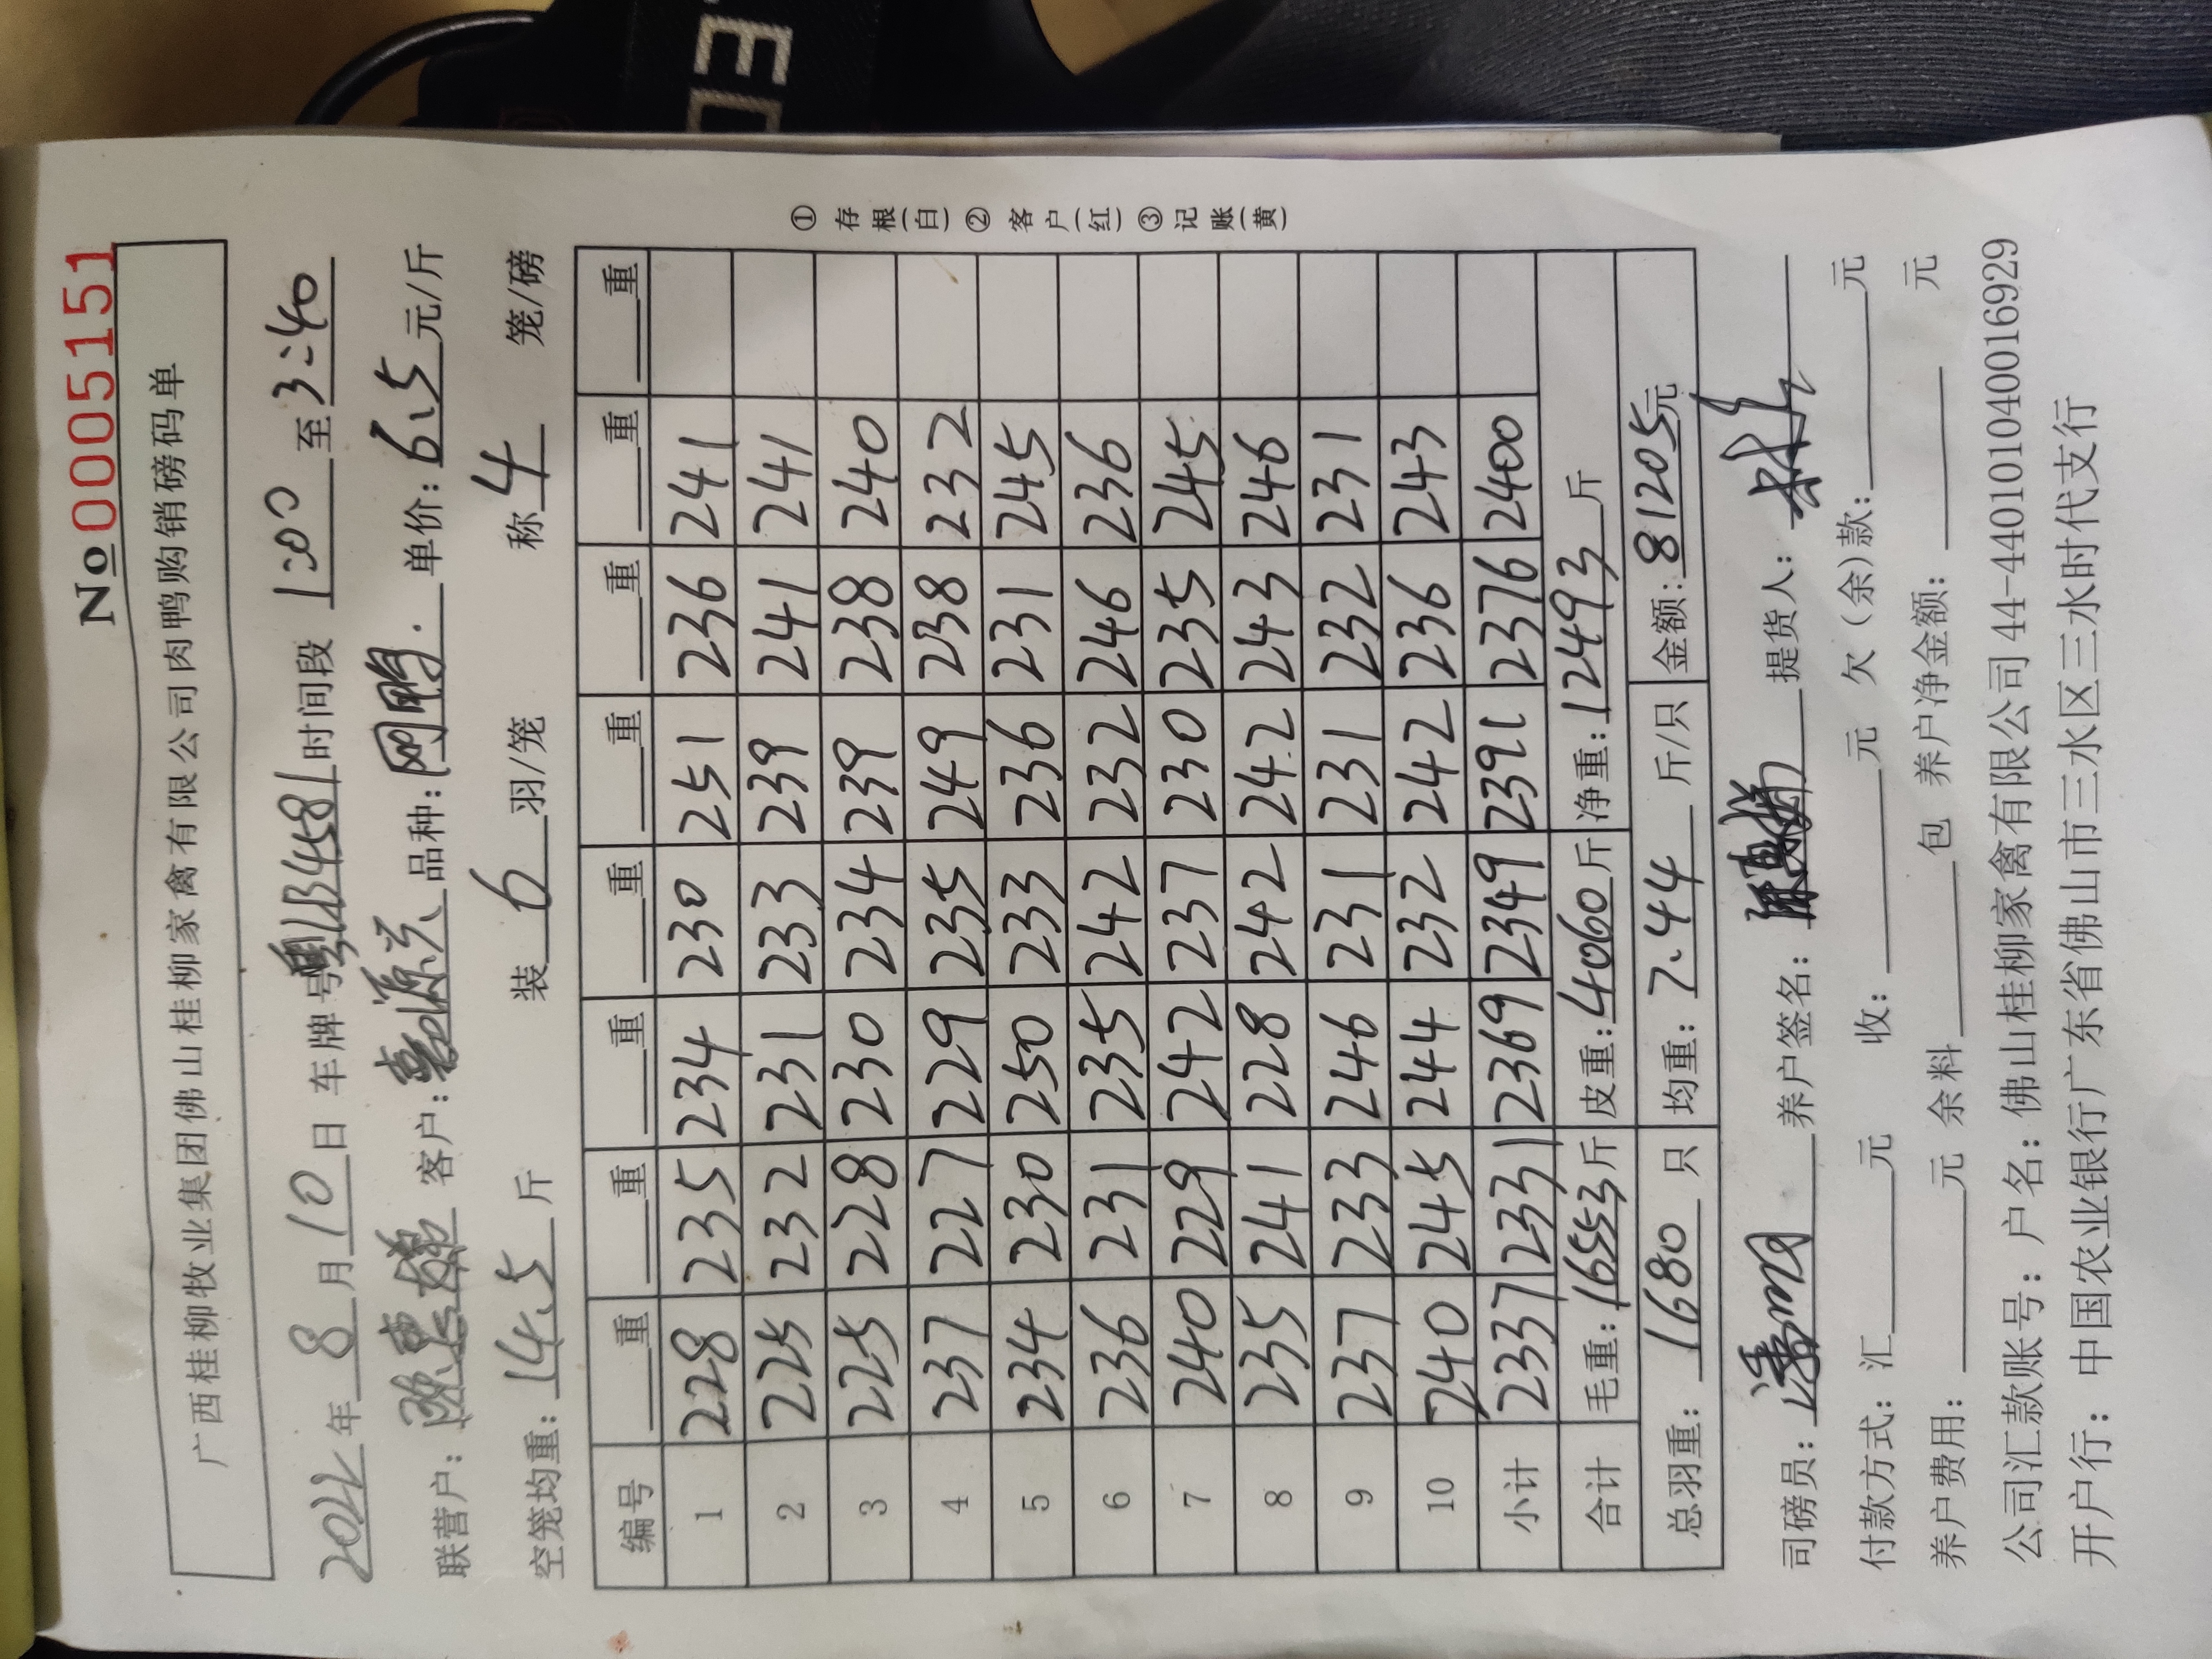 ED
№0005151
广西桂柳牧业集团佛山桂柳家禽有限公司肉鸭购销磅码单
2022年 8 月 10 日 车牌号粤 B4581 时间段 1:00 至 3:40
联营户: 陈 客户: 品种: 网鸭. 单价: 6.5 元/斤
空笼均重: 14.5 斤 装 6 羽/笼 称 4 笼/磅
编号 重 重 重 重 重 重 重 重
1 228 235 234 230 251 236 241
2 225 232 231 233 239 241 241
3 225 228 230 234 239 238 240
4 237 227 229 235 249 238 232
5 234 230 250 233 236 231 245
6 236 231 235 242 232 246 236
7 240 229 242 237 230 235 245
8 235 241 228 242 242 243 246
9 237 233 246 231 231 232 231
10 240 245 244 232 242 236 243
小计 2337 2331 2369 2349 2391 2376 2400
合计 毛重: 16553 斤 皮重: 4060 斤 净重: 12493 斤
总羽重: 1680 只 均重: 7.44 斤/只 金额: 81205元
① 存根(白) ② 客户(红) ③ 记账(黄)
司磅员: 潘 养户签名: 提货人:
付款方式: 汇 元 收: 元 欠(余)款: 元
养户费用: 元 余料 包 养户净金额: 元
公司汇款账号: 户名: 佛山桂柳家禽有限公司 44-440101040016929
开户行: 中国农业银行广东省佛山市三水区三水时代支行